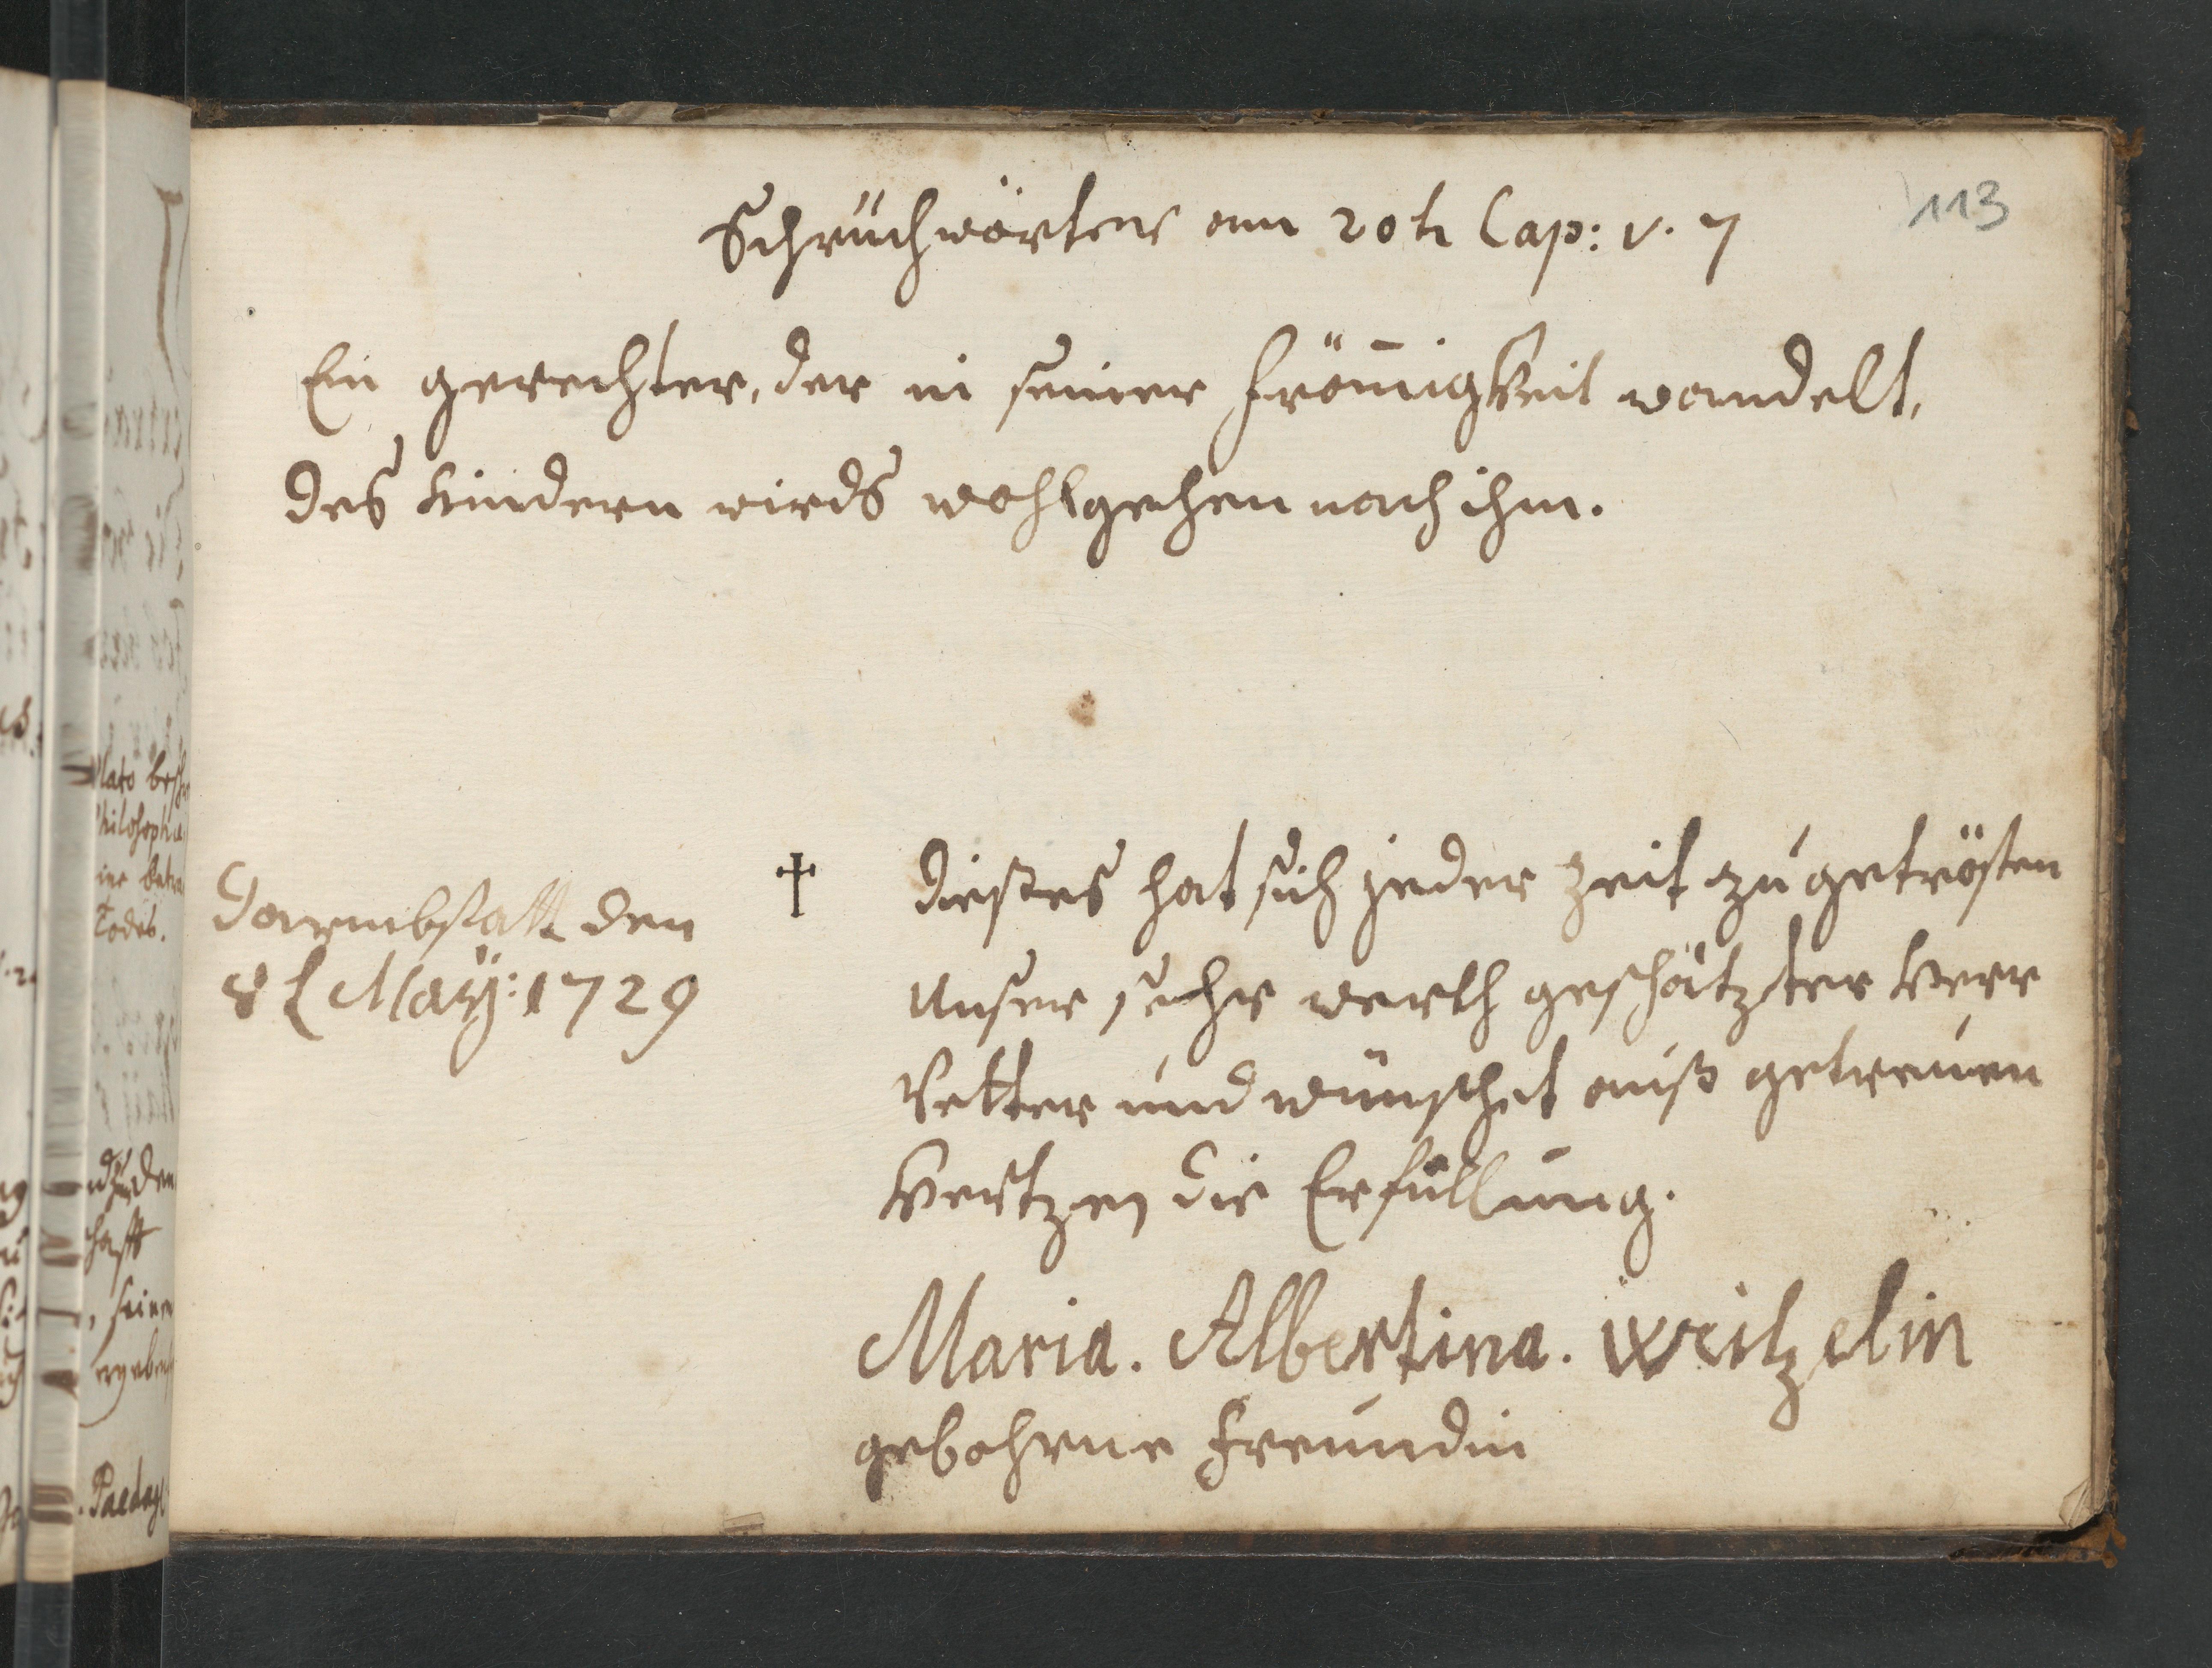 113
Schrüchwörtern am 20tn Cap: v. 7
Ein gerechter, der in seiner frömigkeit wandelt,
des Kindern wirds wohlgehen nach ihm.
Darmbstatt den
8t May: 1729
†
dießes hat sich jeder Zeit zu getrösten
unser sehr werth geschätzter Herr
Vetter und wünschet auß getreuen
Hertzen die Erfüllung.
Maria. Albertina. Weitzelin
gebohrne Freundin
Plato
Todes.
Paedag